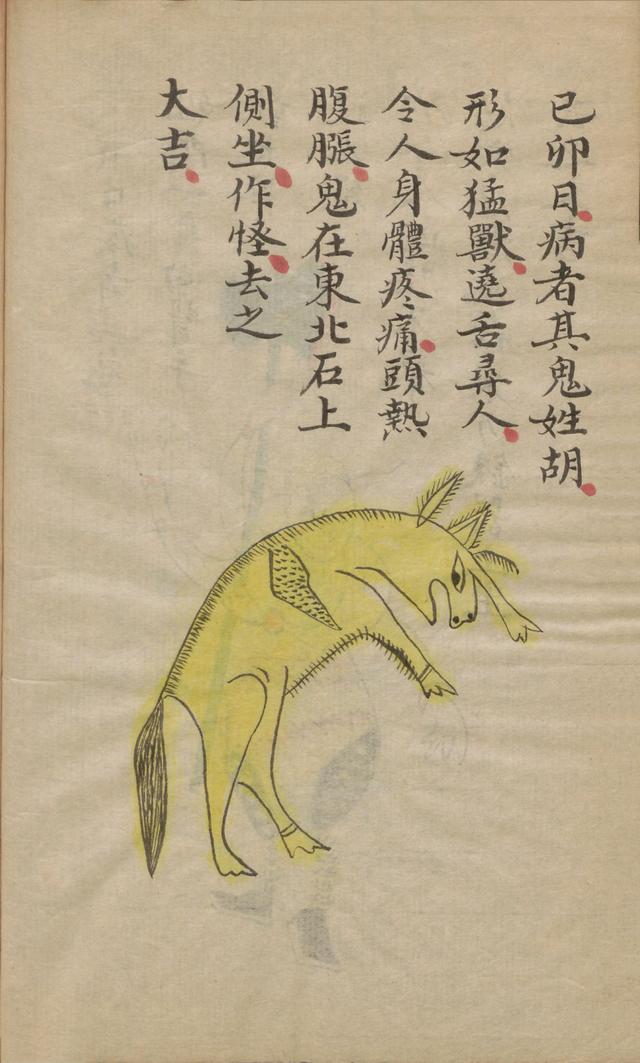 已卯日病者其鬼姓胡
形如猛獸遶舌尋人
令人身體疼痛頭熱
腹脹鬼在東北石上
側坐作怪去之
大吉